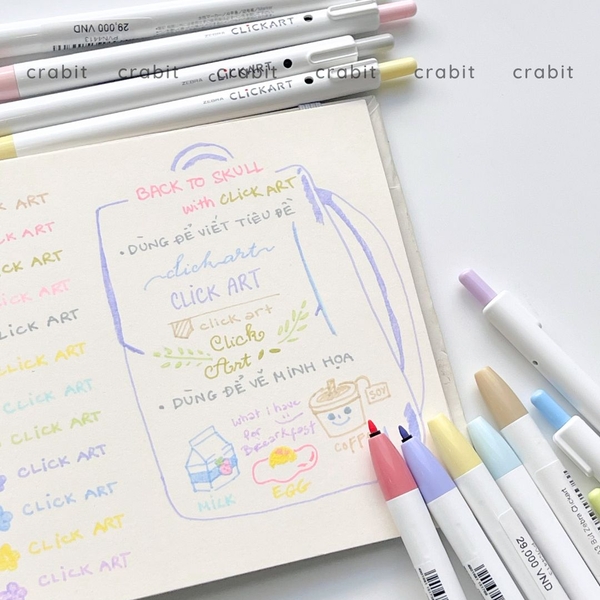 29.000 VND
CLiCKART
crabit crabit crabit crabit crabit crabit
ZEBRA CLiCKART
ZEBRA CLiCKART
BACK TO SKULL
with CLiCK ART
• DÙNG ĐỂ VIẾT TIÊU ĐỀ
click art
CLICK ART
click art
Click
Art
• DÙNG ĐỂ VẼ MINH HỌA
what I have
For
Breakfast
SOY
MILK
EGG
CK ART
CK ART
CLICK ART
CLICK ART
CLICK ART
CLICK ART
CLICK ART
CLICK ART
CLICK ART
CLICK ART
29.000 VND